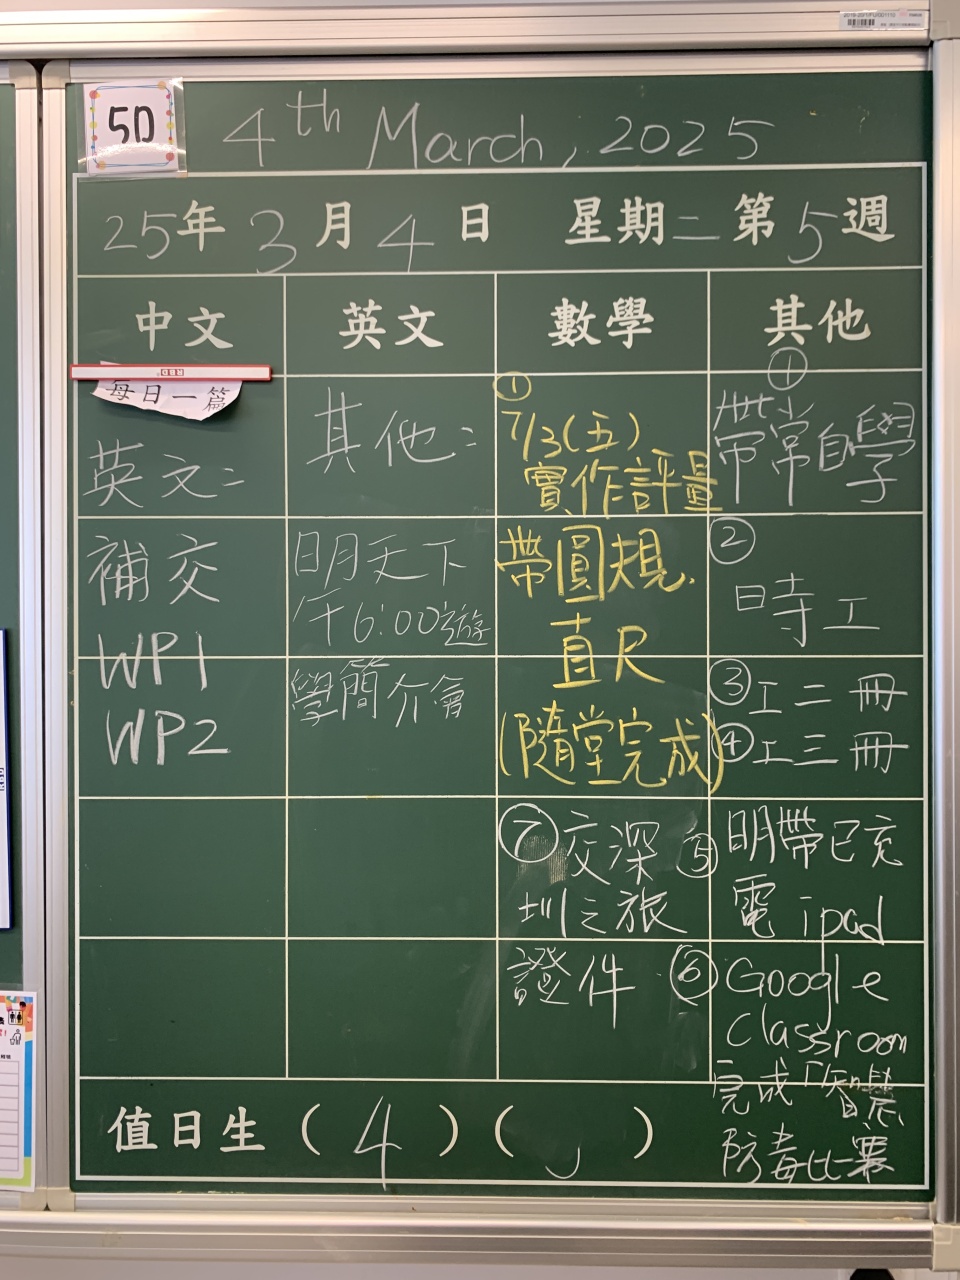 5D
4th March, 2025
25年3月4日 星期二 第5週
中文
英文
數學
其他
每日一篇
英文:
補交
WP1
WP2
其他:
明天下
午6:00遊
學簡介會
①
7/3(五)
實作評量
帶圓規.
直尺
(隨堂完成)
⑦交深
圳之旅
證件
①
帶常自學
②
時工
③工二冊
④工三冊
⑤明帶已充
電ipad
⑥Google
Classroom
完成「智慧
防毒比賽
值日生(4)( )